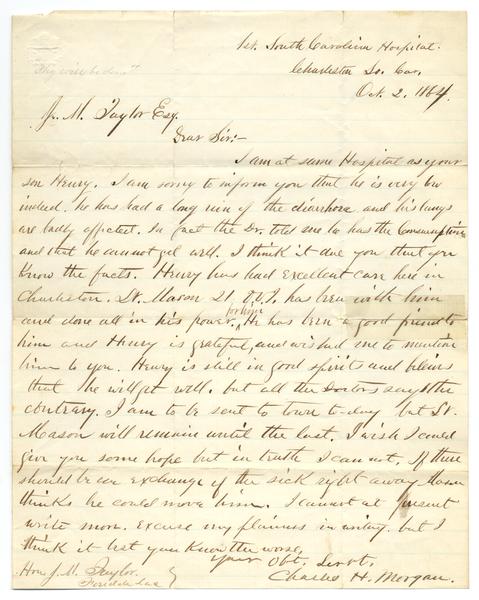 1st. South Carolina Hospital.
Charleston So. Car.
Oct. 2. 1864.
J. M. Taylor Esq.
Dear Sir:-
I am at same Hospital as your
son Henry. I am sorry to inform you that he is very low
indeed. he has had a long run of the diarrhoea and his lungs
are badly affected. In fact the Dr. told me he has the Consumption
and that he cannot get well. I think it due you that you
know the facts. Henry has had excellent care here in
Charleston. Lt. Mason 21 O.V.I. has been with him
and done all in his power, for him He has been a good friend to
him and Henry is grateful, and wished me to mention
him to you. Henry is still in good spirits and beleivs
that he will get well. but all the Doctors say the
contrary. I am to be sent to town to-day but Lt.
Mason will remain until the last. I wish I could
give you some hope but in truth I can not. If there
should be an exchange of the sick right away Mason
thinks he could move him. I cannot at present
write more. Excuse my plainness in writing. but I
think it best you know the worse.
Your Obt. Servt.
Charles H. Morgan.
Hon J. M. Taylor.